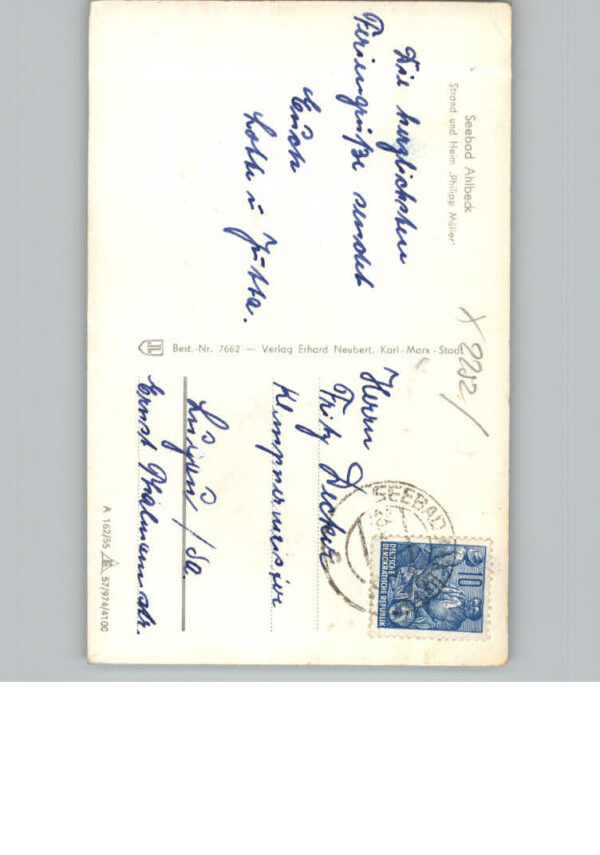 Seebad Ahlbeck
Strand und Heim „Philipp Müller“
Die herzlichsten
Feriengrüße sendet
Euch
Lotte u Jutta.
X 9202/
Best.-Nr. 7662 — Verlag Erhard Neubert, Karl-Marx-Stadt
Herrn
Fritz Decker
Klempnermeister
/ Sa.
Ernst Thälmannstr.
SEEBAD
10
DEUTSCHE
DEMOKRATISCHE REPUBLIK
A 162/55 57/974/4100